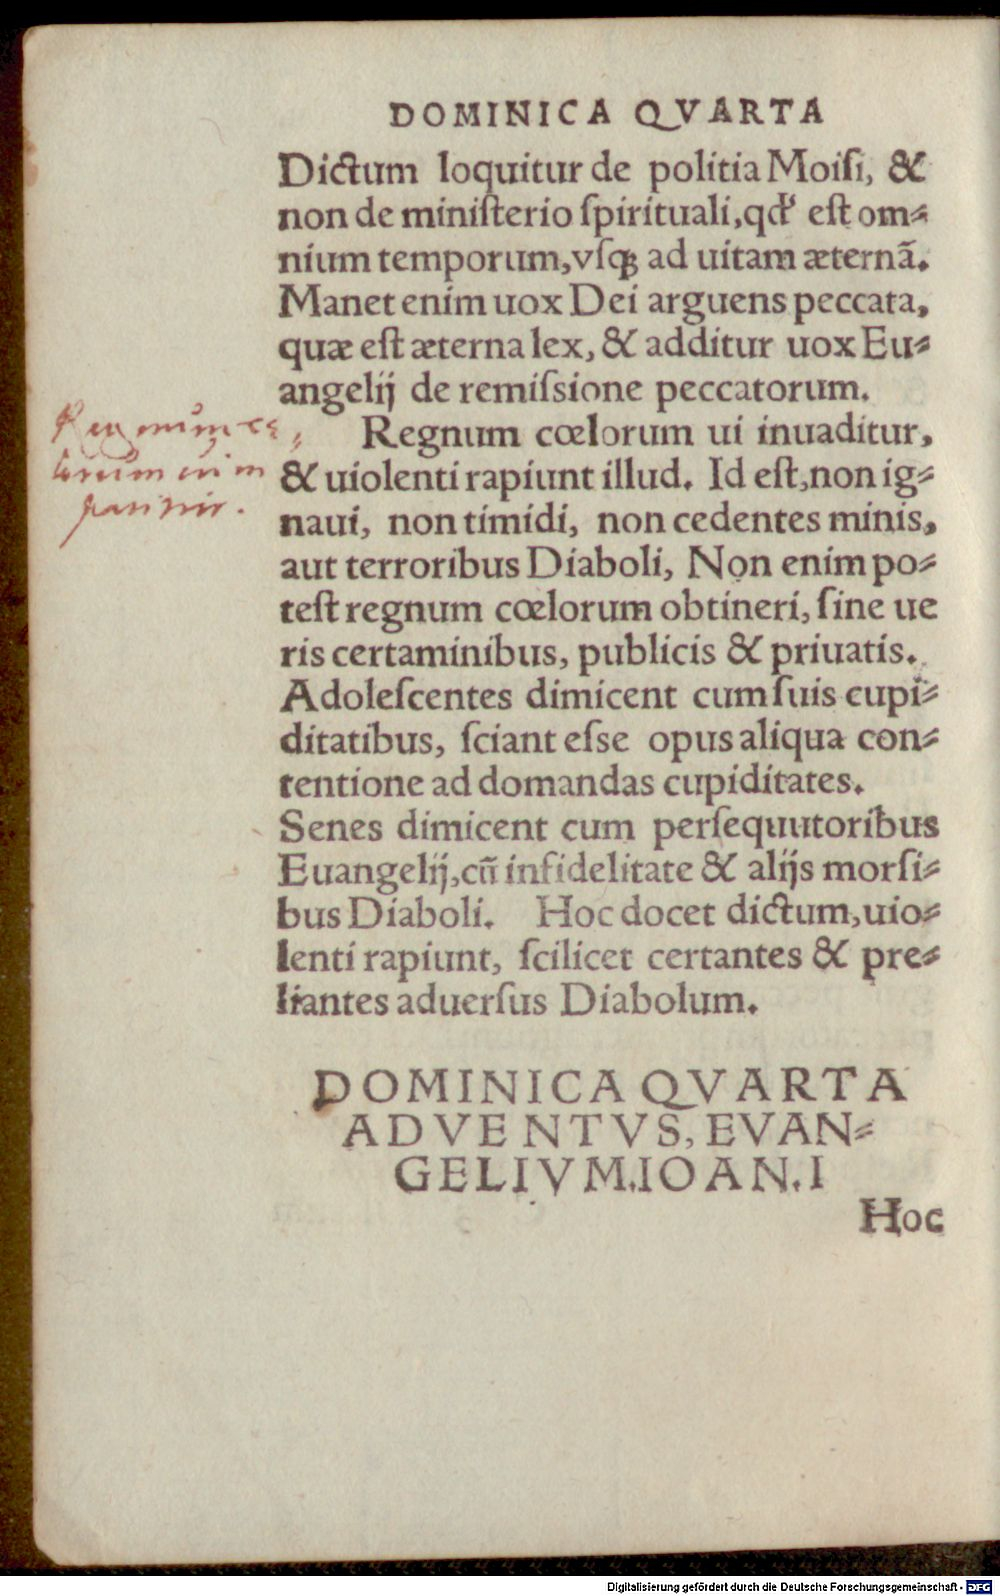 DOMINICA QVARTA
Dictum loquitur de politia Moiſi, &
non de miniſterio ſpirituali, qđ eſt om⸗
nium temporum, vſqꝫ ad uitam æternã.
Manet enim uox Dei arguens peccata,
quæ eſt æterna lex, & additur uox Eu⸗
angelij de remiſsione peccatorum.
Regnum cœlorum ui inuaditur,
& uiolenti rapiunt illud. Id eſt, non ig⸗
naui, non timidi, non cedentes minis,
aut terroribus Diaboli, Non enim po⸗
teſt regnum cœlorum obtineri, ſine ue
ris certaminibus, publicis & priuatis.
Adoleſcentes dimicent cum ſuis cupi⸗
ditatibus, ſciant eſſe opus aliqua con⸗
tentione ad domandas cupiditates.
Senes dimicent cum perſequutoribus
Euangelij, cũ infidelitate & alijs morſi⸗
bus Diaboli. Hoc docet dictum, uio⸗
lenti rapiunt, ſcilicet certantes & pre⸗
liantes aduerſus Diabolum.
Regnum cę⸗
lorum vi
DOMINICA QVARTA
ADVENTVS, EVAN⸗
GELIVM. IOAN. I
Hoc
Digitalisierung gefördert durch die Deutsche Forschungsgemeinschaft - DFG